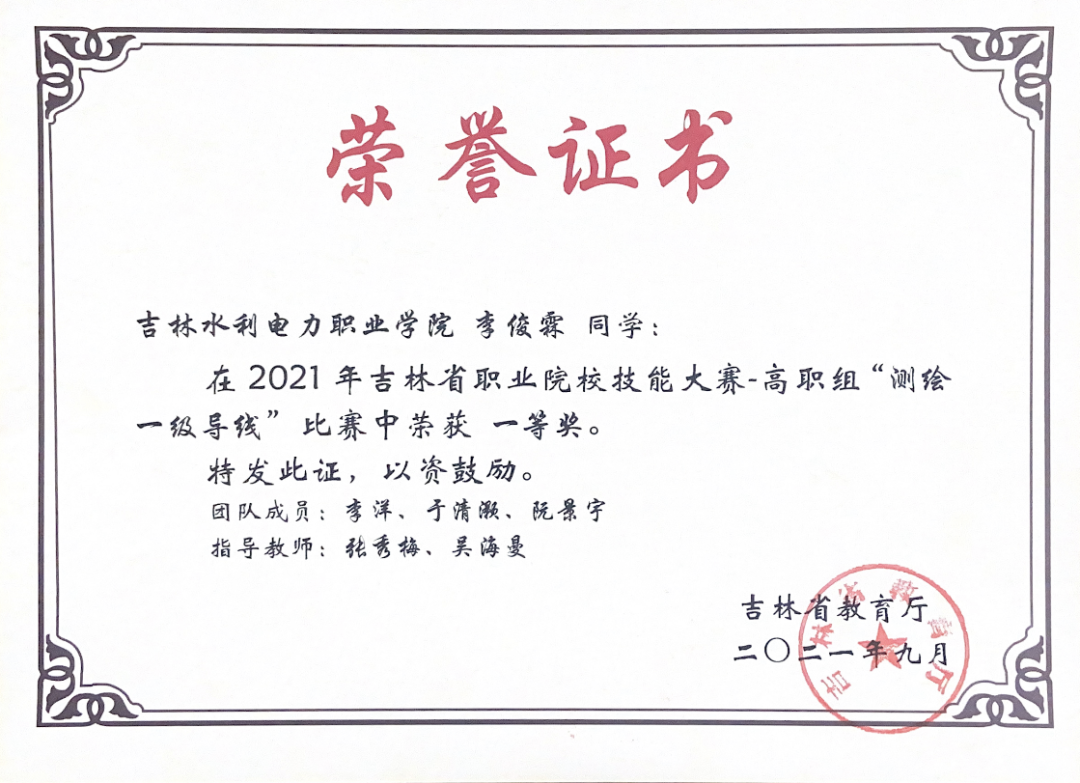 荣誉证书
吉林水利电力职业学院 李俊霖 同学：
在2021年吉林省职业院校技能大赛-高职组“测绘
一级导线”比赛中荣获 一等奖。
特发此证，以资鼓励。
团队成员：李洋、于清灏、阮景宇
指导教师：张秀梅、吴海曼
吉林省教育厅
二〇二一年九月
吉林省教育厅